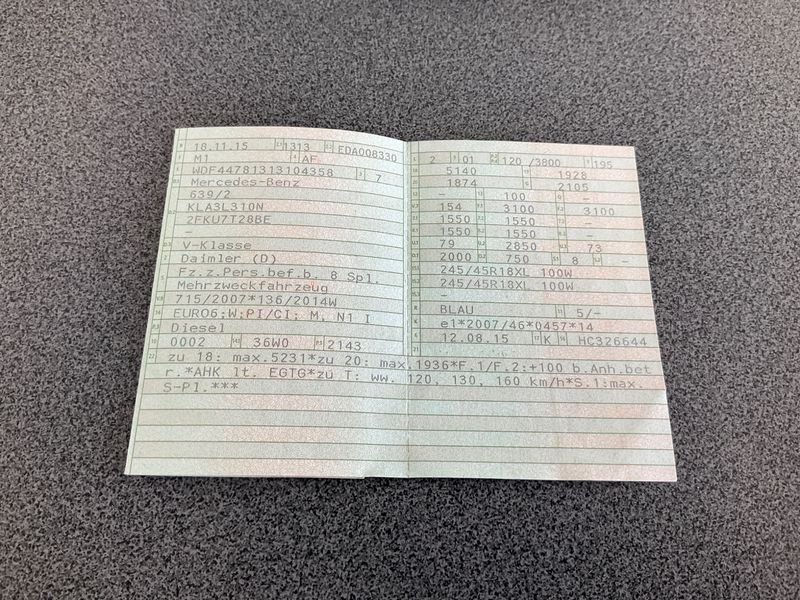 18.11.15 1313 EDA008330
M1 AF
WDF44781313104358 7
Mercedes-Benz
639/2
KLA3L310N
2FKU7T28BE
-
V-Klasse
Daimler (D)
Fz.z.Pers.bef.b. 8 Spl.
Mehrzweckfahrzeug
715/2007*136/2014W
EURO6;W;PI/CI; M, N1 I
Diesel
0002 36W0 2143
2 01 120 /3800 195
5140 1928
1874 2105
- 100 -
154 3100 3100
1550 1550 -
1550 1550 -
79 2850 73
2000 750 8 -
245/45R18XL 100W
245/45R18XL 100W
-
BLAU 5/-
e1*2007/46*0457*14
12.08.15 K HC326644
zu 18: max.5231*zu 20: max.1936*F.1/F.2:+100 b.Anh.bet
r.*AHK lt. EGTG*zu T: ww. 120, 130, 160 km/h*S.1:max.
S-Pl.***